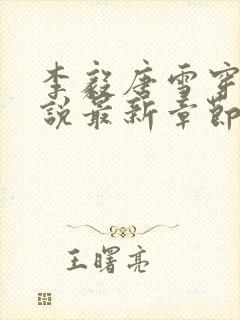 李毅唐雪穿
說最新章節
王曙亮